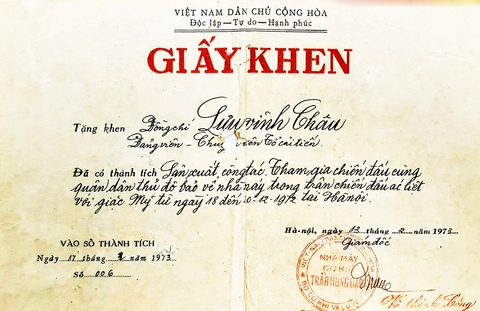 VIỆT NAM DÂN CHỦ CỘNG HÒA
Độc lập — Tự do — Hạnh phúc
GIẤY KHEN
Tặng khen Đồng chí Lưu Vĩnh Châu
Đảng viên - Chuyên viên Tổ cải tiến
Đã có thành tích Sản xuất, công tác, Tham gia chiến đấu cùng
quân dân thủ đô bảo vệ nhà máy trong trận chiến đấu ác liệt
với giặc Mỹ từ ngày 18 đến 12-1972 tại Hà Nội.
Hà-nội, ngày 13 tháng 2 năm 1973
Giám đốc
VÀO SỔ THÀNH TÍCH
Ngày 17 tháng 2 năm 1973
Số 006
NHÀ MÁY
CƠ KHÍ
TRẦN HƯNG ĐẠO
BỘ CƠ KHÍ VÀ LUYỆN